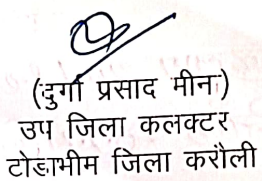 (दुर्गा प्रसाद मीन)
उप जिला कलक्टर
टोडाभीम जिला करौली